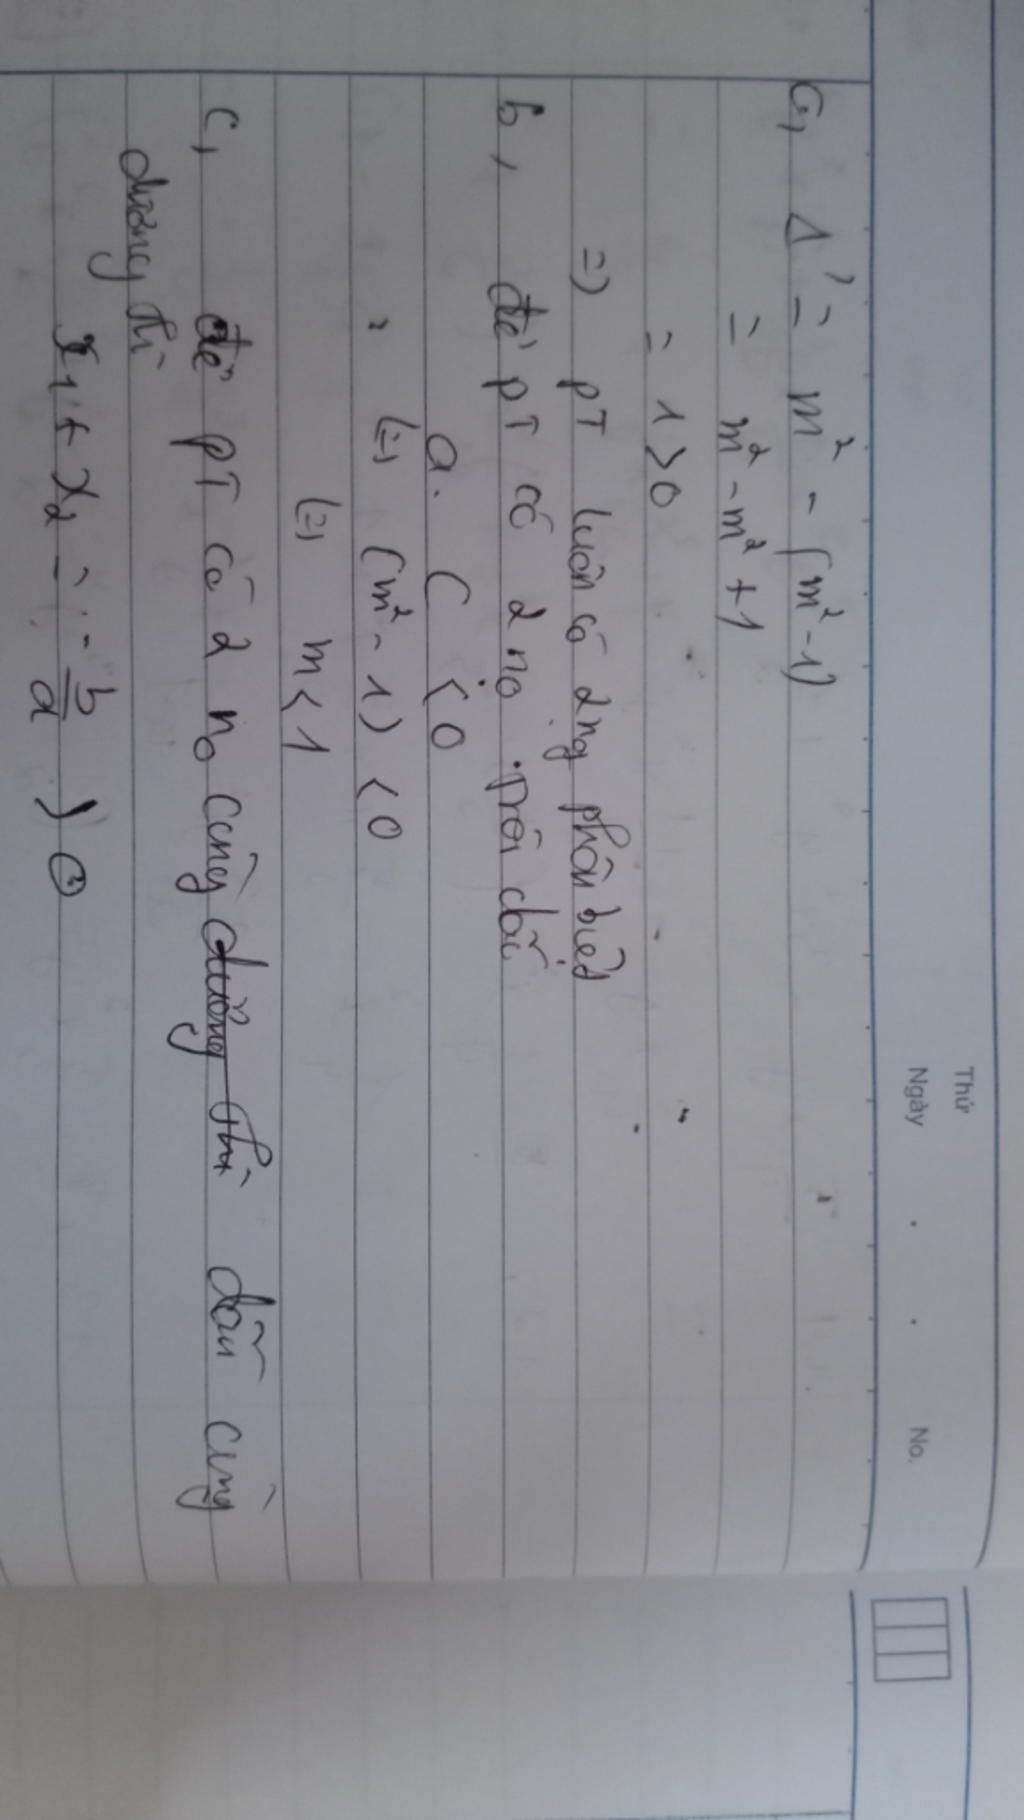 Thứ
Ngày . . No.
a, Δ' = m² - (m² - 1)
= m² - m² + 1
= 1 > 0
=> PT luôn có 2 ng phân biệt
b, để PT có 2 no trái dấu
a. c < 0
(=) (m² - 1) < 0
(=) m < 1
c, để PT có 2 no cùng dương thì dấu cùng
dương thì
x1 + x2 = -b/a > 0